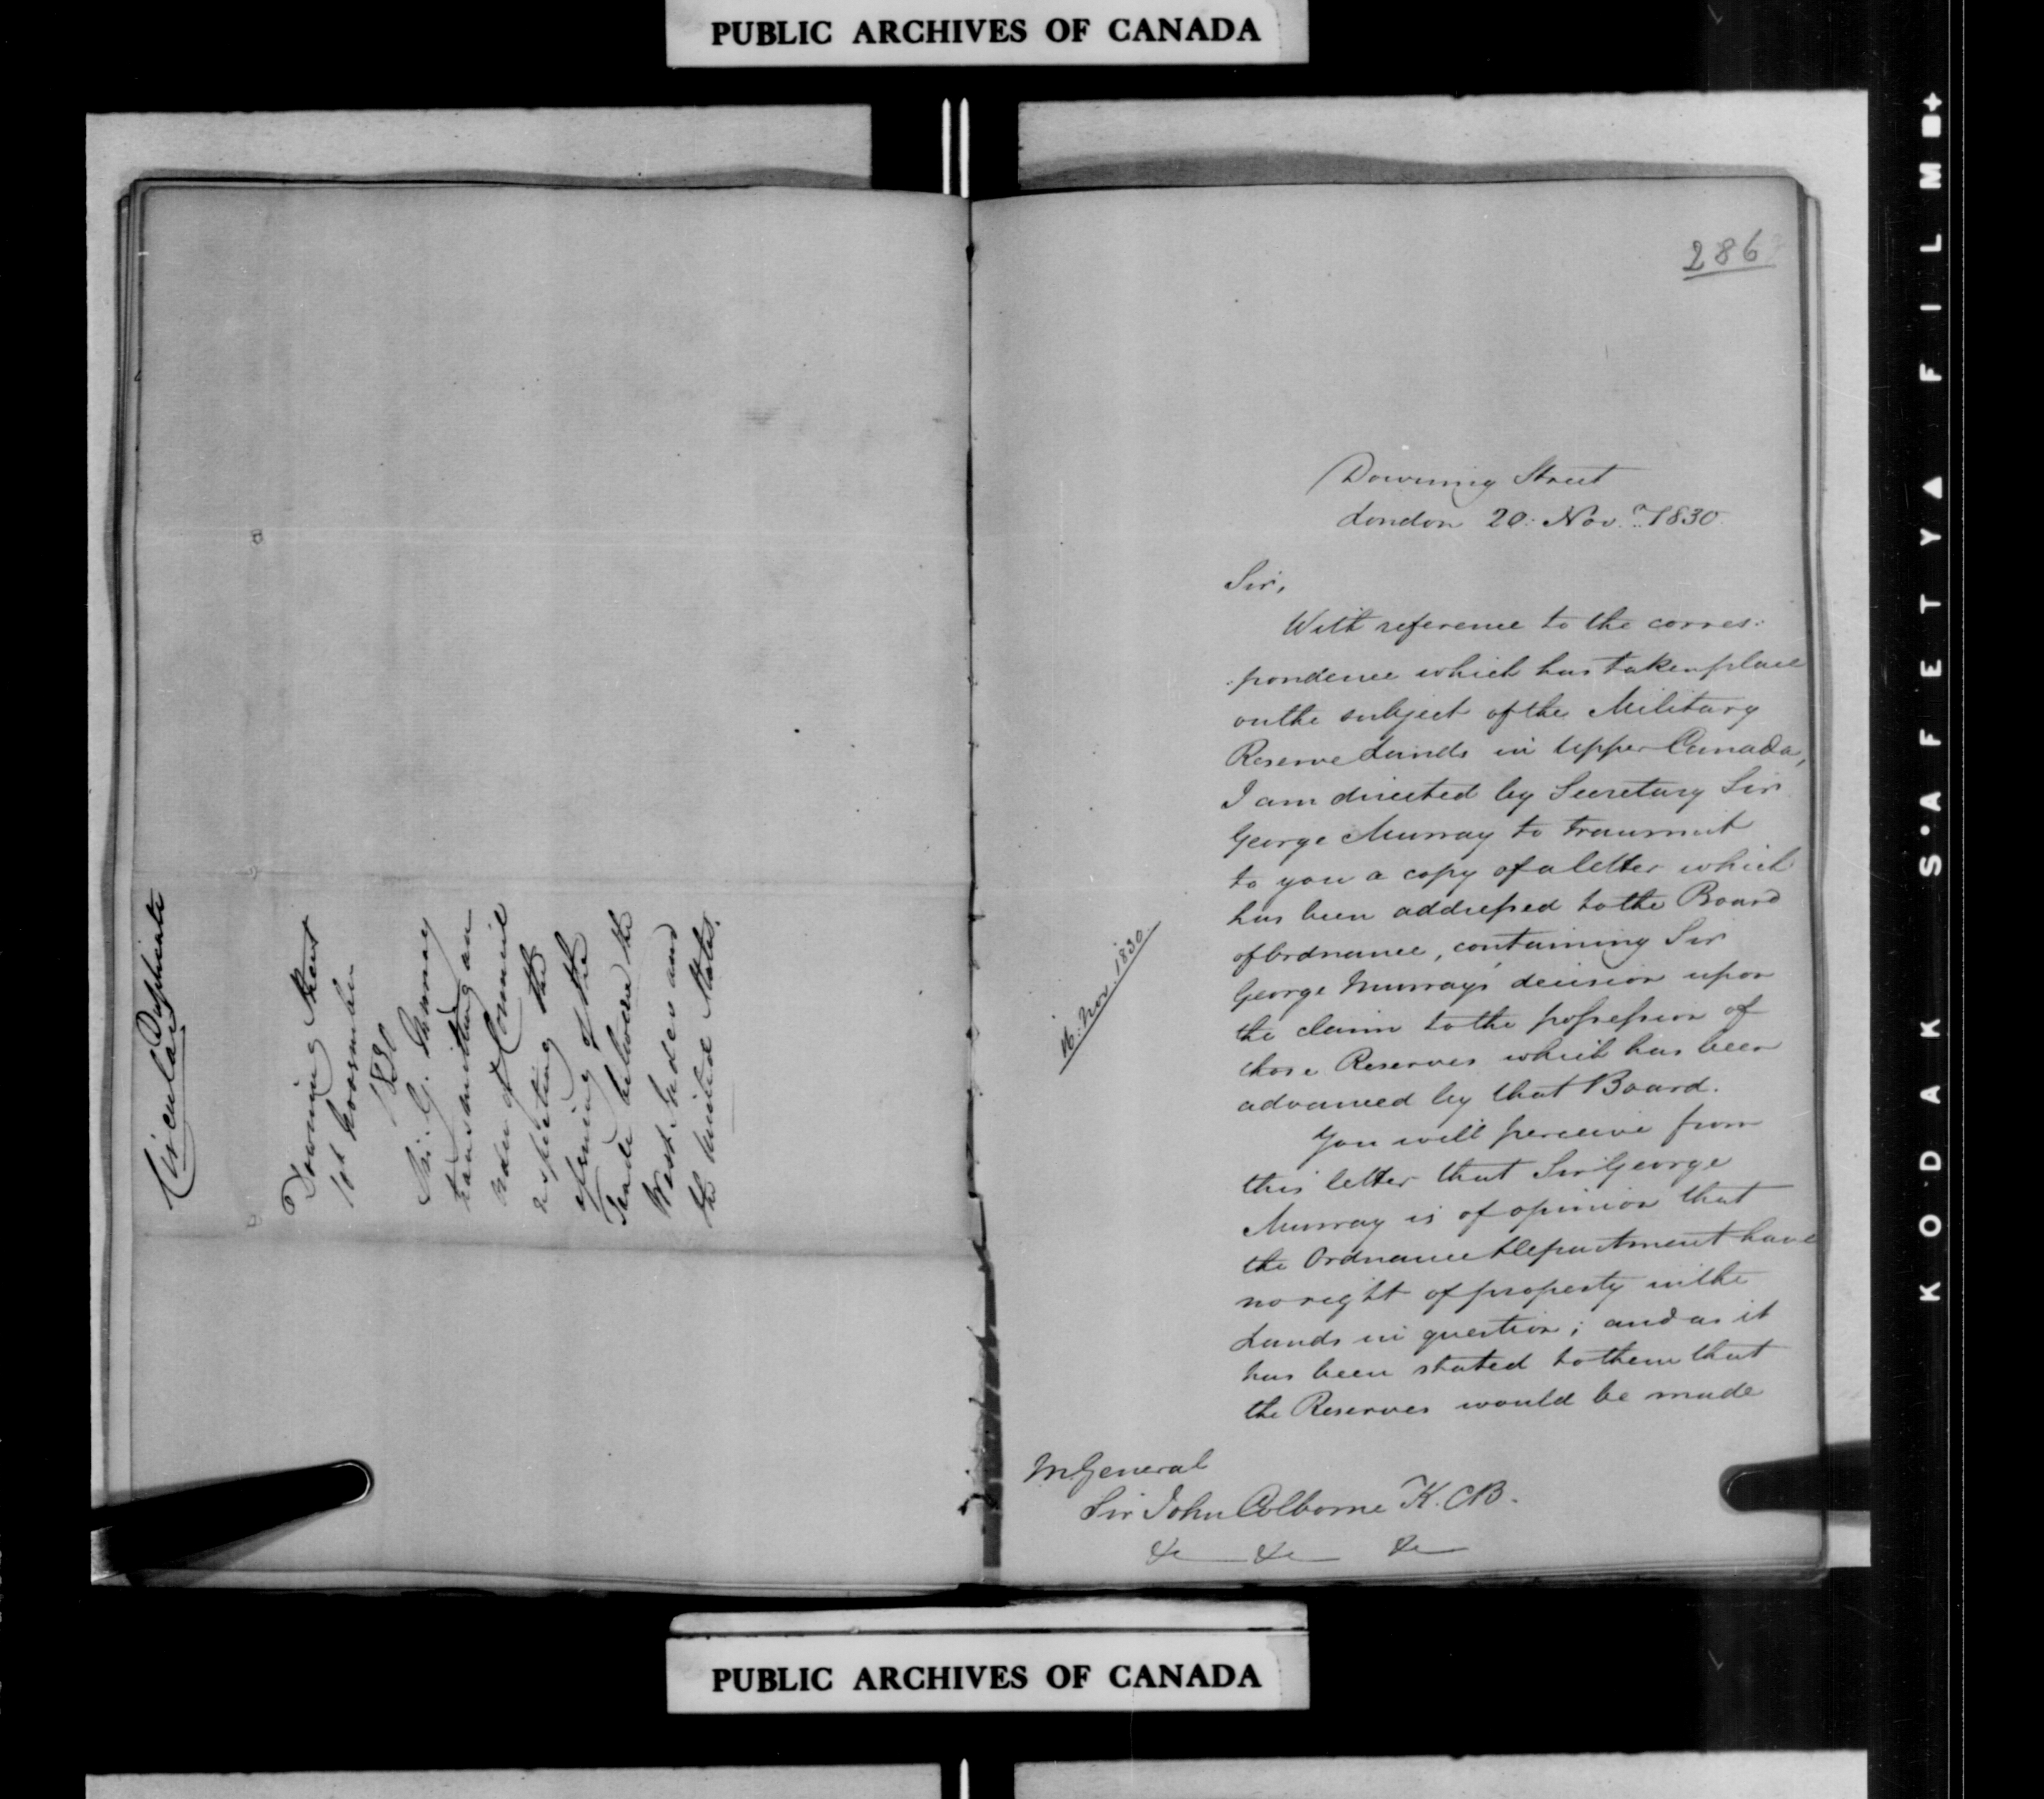 PUBLIC ARCHIVES OF CANADA
Circular
Duplicate
Downing Street
1st November
1830
Sir G. Murray
transmitting an
order of Council
respecting the
opening of the
Trade between the
West Indies and
the United States.
286
Downing Street
London 20: Nov.r 1830.
Sir,
With reference to the corres:
:pondence which has taken place
on the subject of the Military
Reserve Lands in Upper Canada,
I am directed by Secretary Sir
George Murray to transmit
to you a copy of a letter which
has been addressed to the Board
of Ordnance, containing Sir
George Murray's decision upon
the claim to the possession of
those Reserves which has been
advanced by that Board.
You will perceive from
this letter that Sir George
Murray is of opinion that
the Ordnance Department have
no right of property in the
Lands in question; and as it
has been stated to them that
the Reserves would be made
16: Nov. 1830.
M General
Sir John Colborne K.C.B.
&c &c &c
PUBLIC ARCHIVES OF CANADA
KODAK S·AFETY▲FILM